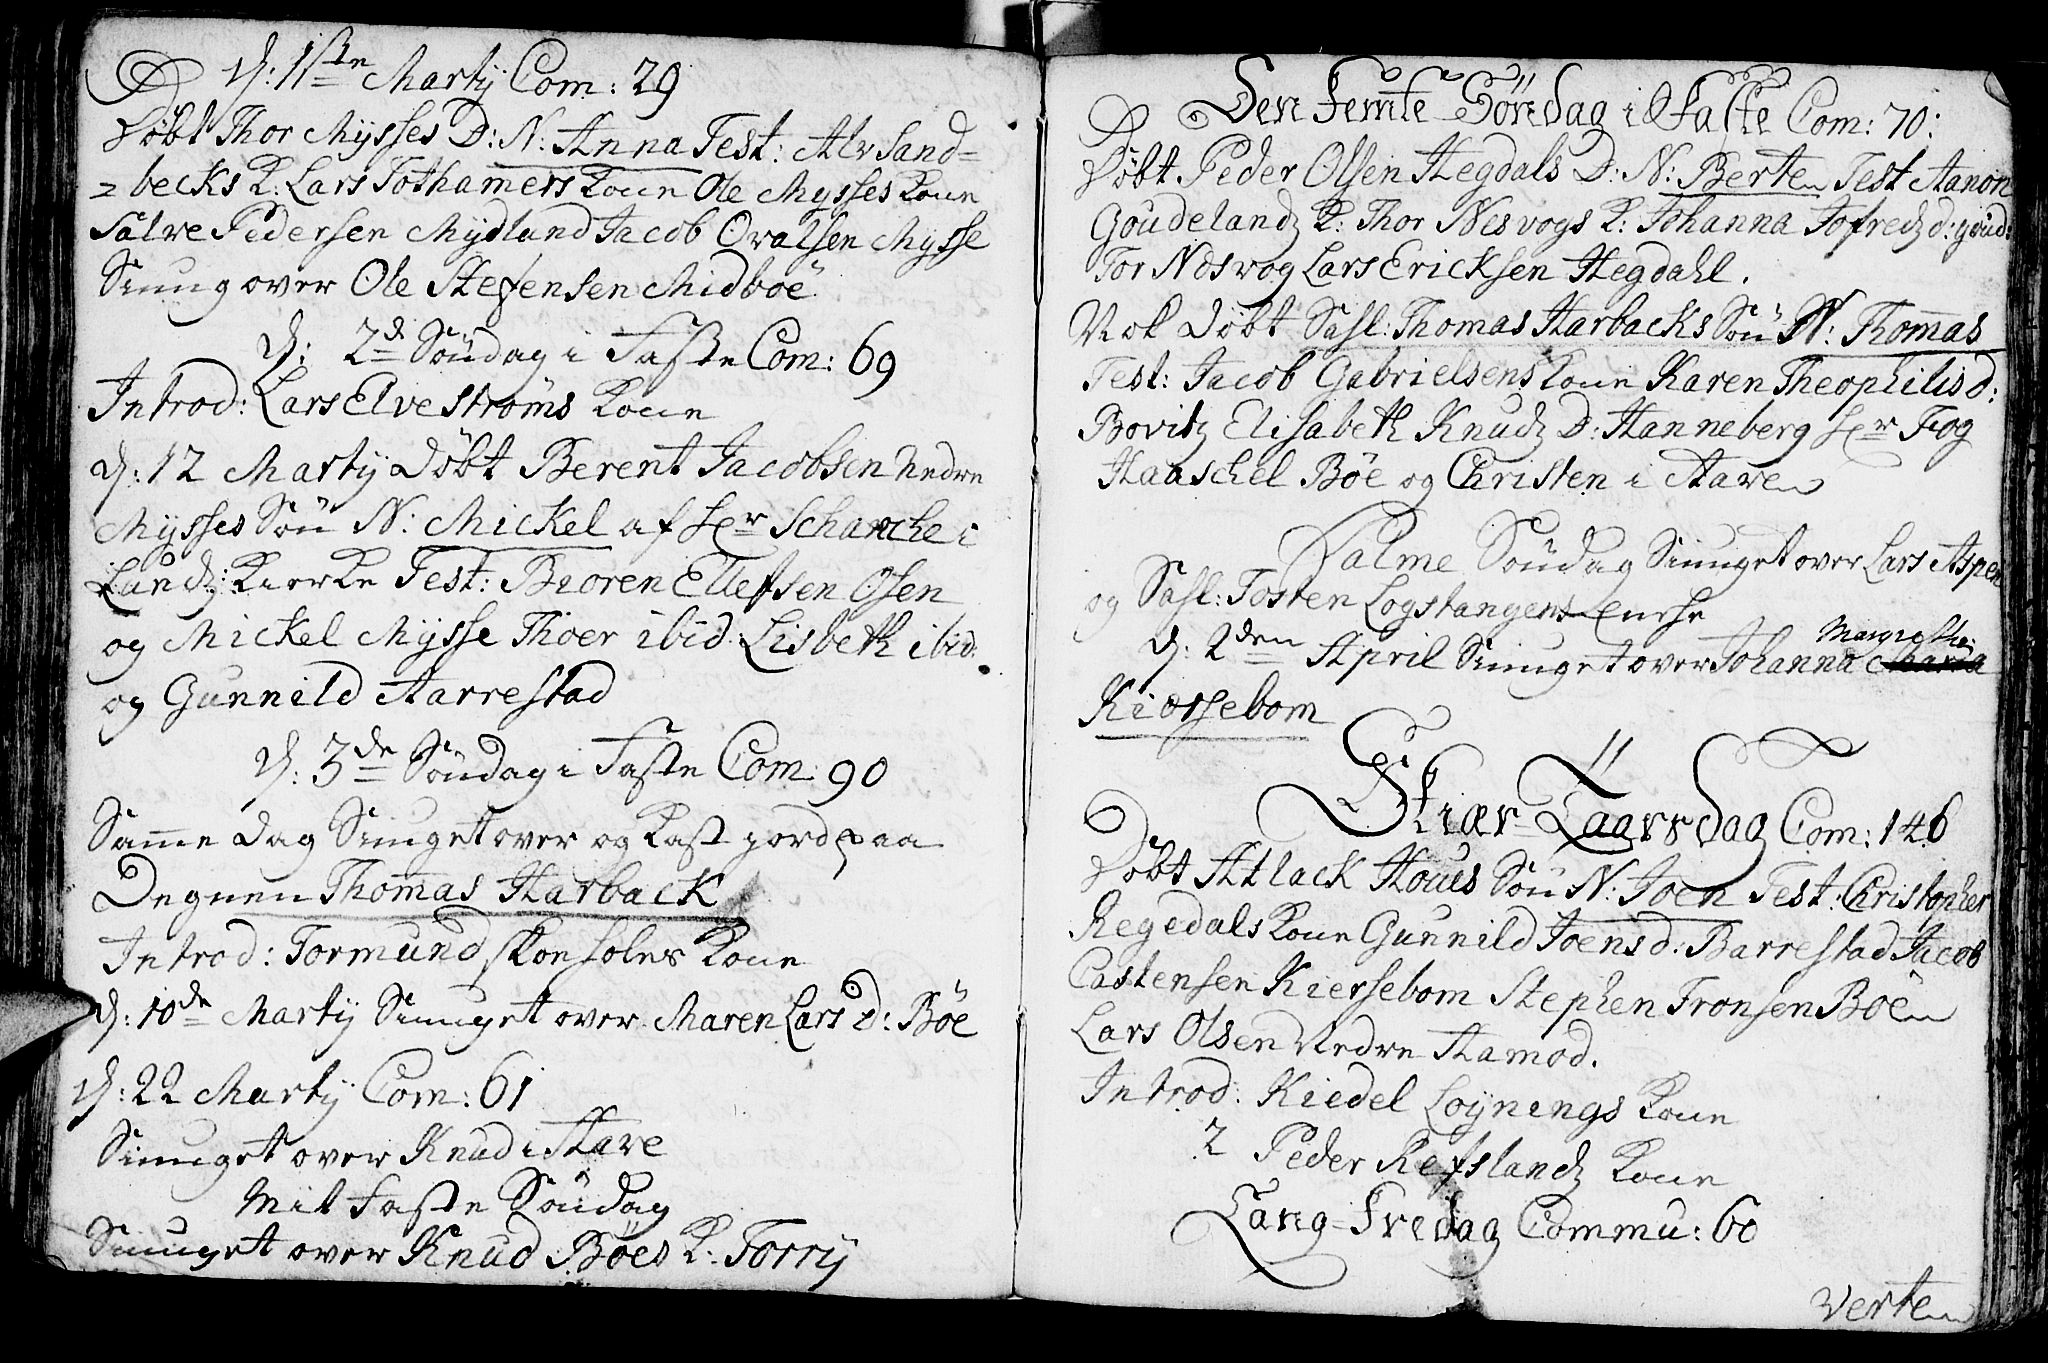 d: 1ste Martij Com: 29
Døbt Thor Mysses D: N: Anna Test: Alv Sand=
=becks K: Lars Tothamers Kone Ole Mysses Kone
Salve Pedersen Mydland Jacob Ovalsen Mysse
Siung over Ole Stefensen Midboe
d: 2d Søndag i Faste Com: 69
Introd: Lars Elvestrøms Kone
d: 12 Martij døbt Berent Jacobsen Nedre
Mysses Søn N: Mickel af Hr Schanche i
Lunds: Kierke Test: Bioren Ellefsen Osen
og Mickel Mysse Thoer ibid: Lisbeth ibid:
og Gunnild Aarrestad
d: 3de Søndag i Faste Com: 90
Samme dag Siunget over og Kast jord paa
Degnen Thomas Harback
Introd: Tormund Skonsoles Kone
d: 10de Martij Siunget over Maren Lars D: Böe
d: 22 Martij Com: 61
Siunget over Knud i Aare
Mit faste Søndag
Siunget over Knud Böes K: Torrij
Den femte Söndag i Faste Com: 70:
Døbt Peder Olsen Hegdals D: N: Berte Test Aanon
Goudelands K: Thor Nesvogs K: Johanna Jofreds d: goud:
Tor Nesvog Lars Ericksen Hegdahl.
Nok døbt Sahl: Thomas Harbacks Søn N: Thomas
Test: Jacob Gabrielsens Kone Karen Theophilis d:
Bovitz Elisabeth Knuds D: Hanneberg Hr Fog
Haaschel Böe og Christen i Aaren
Palme Søndag Siunget over Lars Aspen
og Sahl: Tosten Logstangens Enche
d: 2den April Siunget over Johanna Margrethe Maria
Kiørsebom
Skiær-Taarsdag Com: 146
Døbt Atlack Houes Søn N: Joen Test: Christopher
Regedals Kone Gunnild Joens d: Barrestad Jacob
Castensen Kiersebom Stephen Tronsen Böe
Lars Olsen Nedre Aamod.
Introd: Kiedel Loynings Kone
2 Peder Refslands Kone
Lang-Fredag Commu: 60
Verte